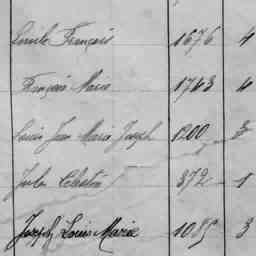 Camille François 1676 4
François Marie 1763 4
Louis Jean Marie Joseph 1200 3
Jules Célestin 372 1
Joseph Louis Marie 1085 3